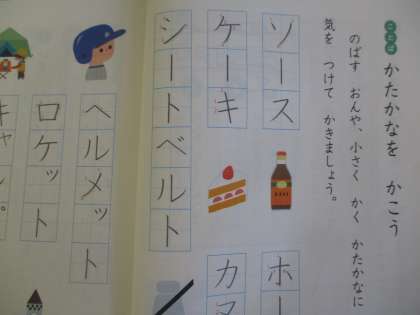 ことば
かたかなを かこう
のばす おんや、小さく かく かたかなに
気を つけて かきましょう。
ソース
ケーキ
シートベルト
ホー
カヌ
ヘルメット
ロケット
キャンプ